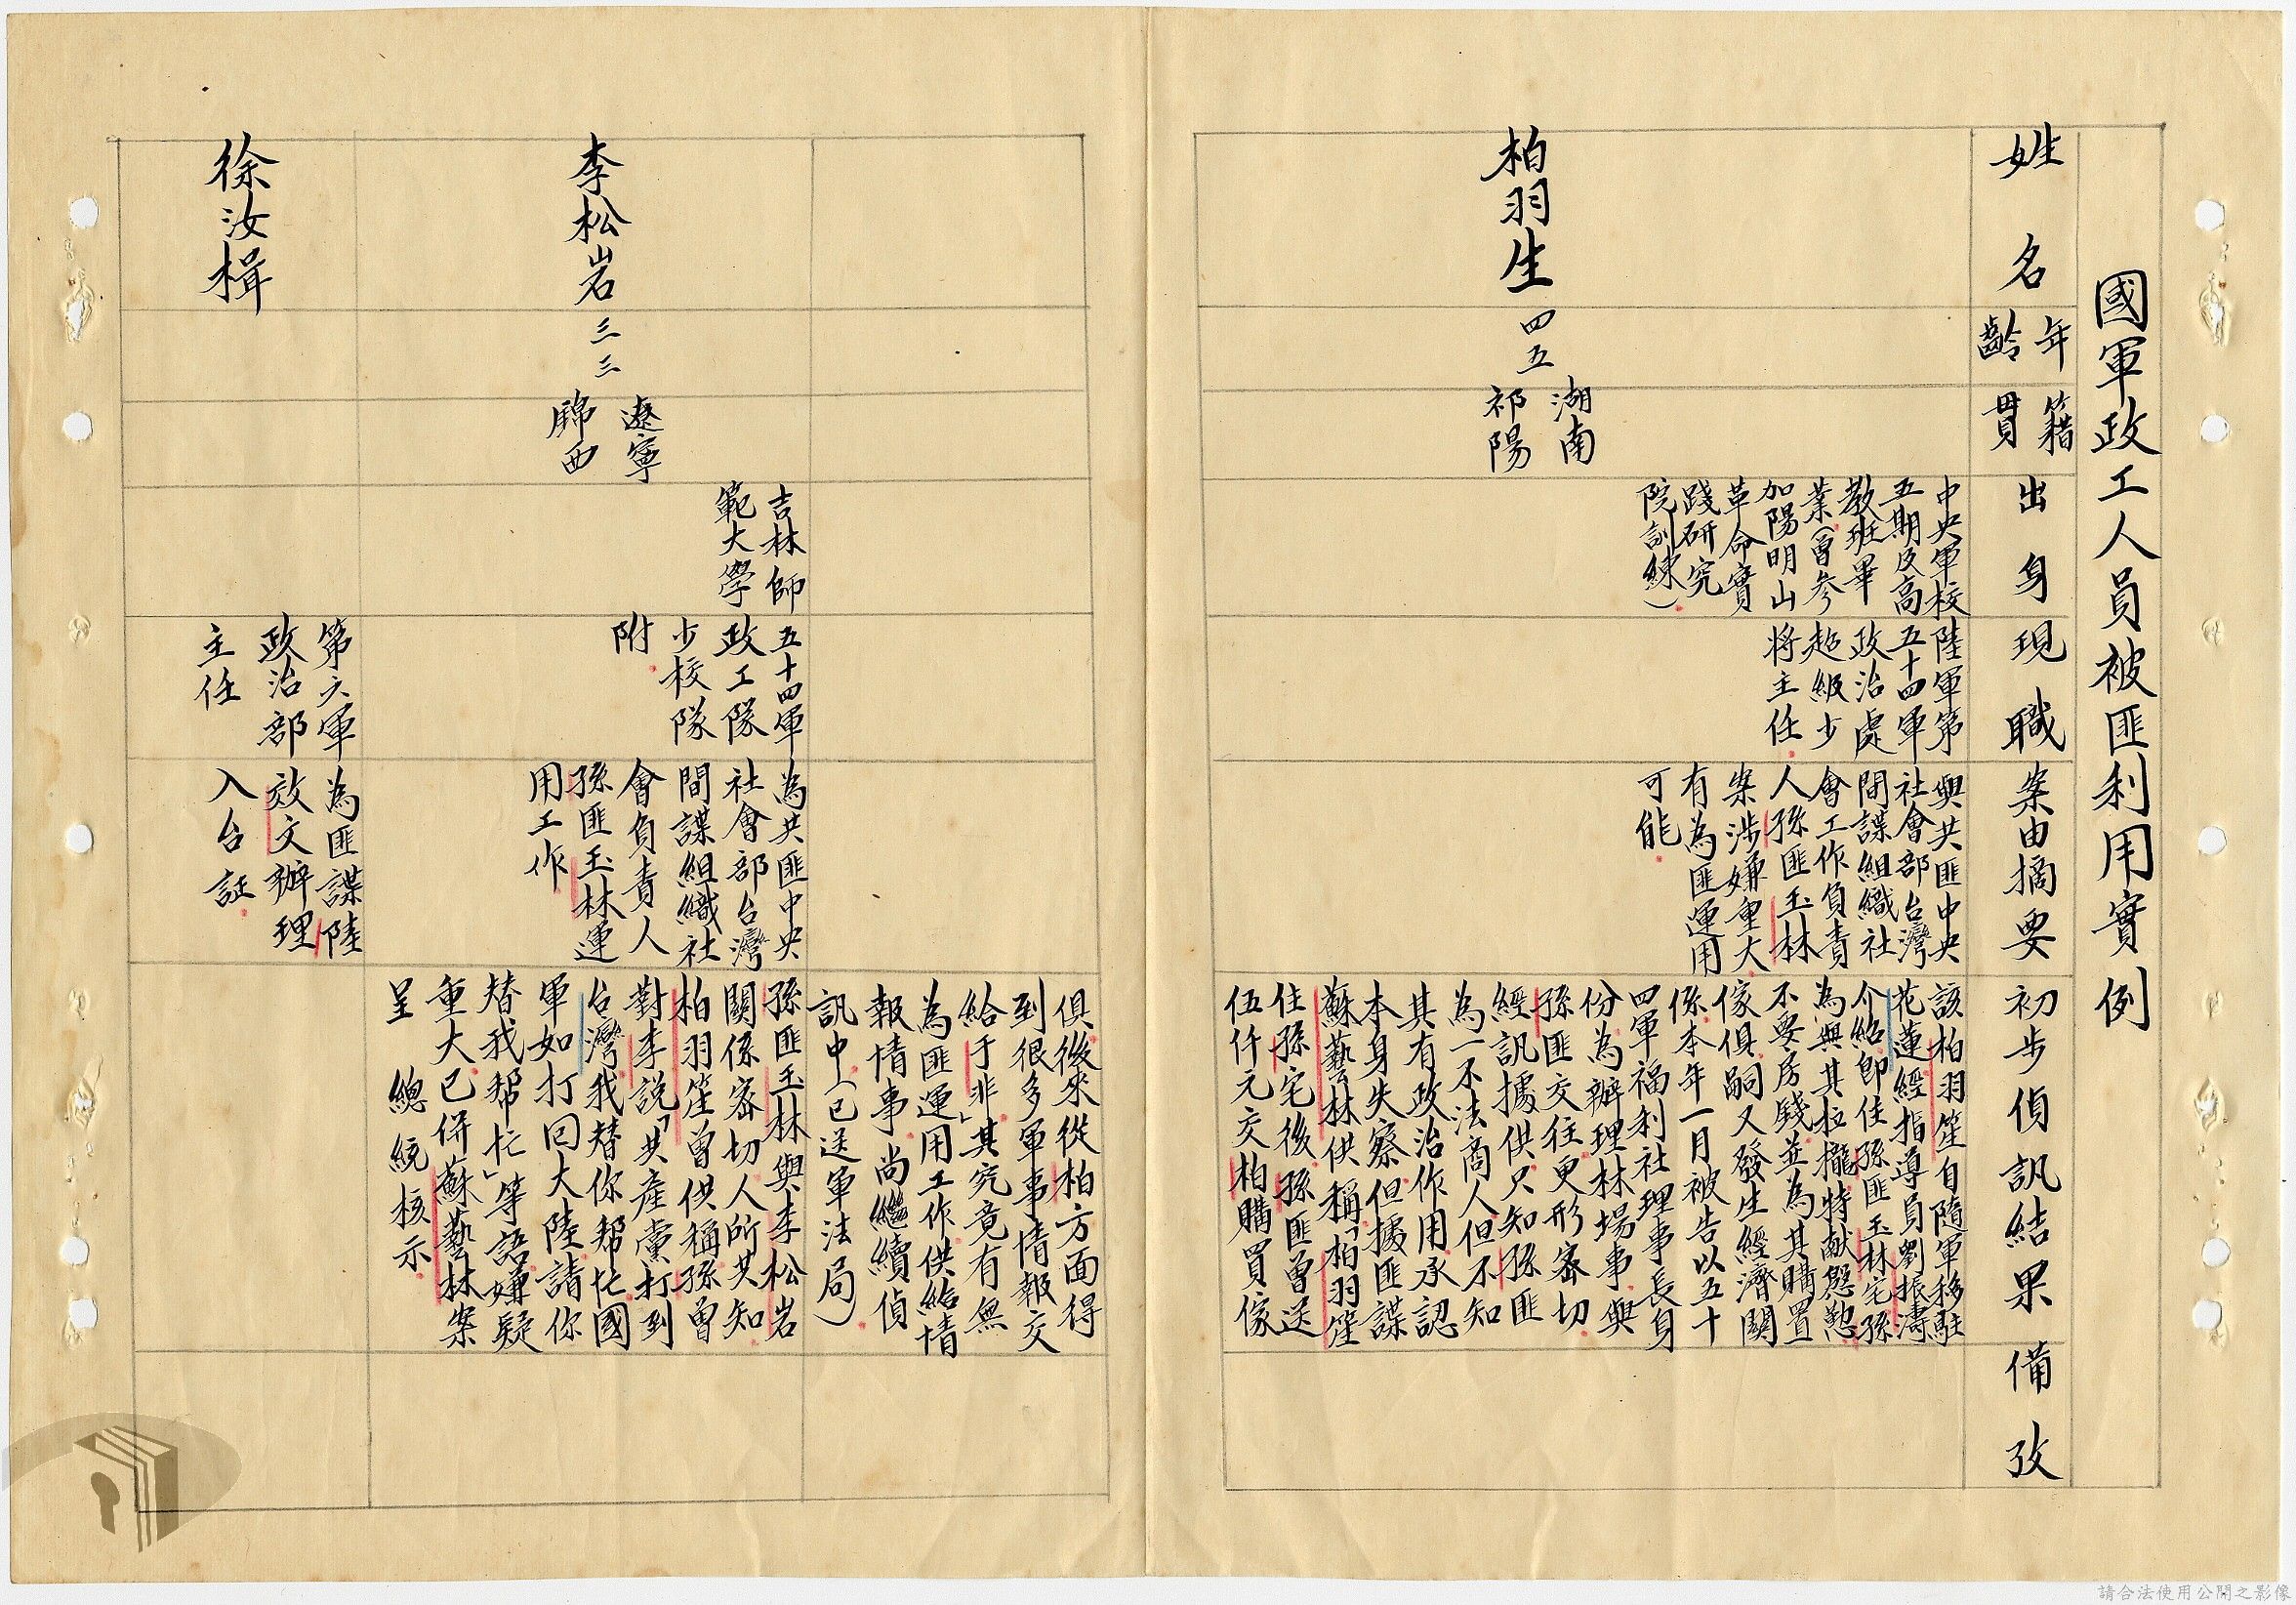 國軍政工人員被匪利用實例
姓名
年齡
籍貫
出身
現職
案由摘要
初步偵訊結果
備攷
柏羽生
四五
湖南
祁陽
中央軍校
五期及高
教班畢
業(曾參
加陽明山
革命實
踐研究
院訓練)
陸軍第
五十四軍
政治處
超級少
將主任
與共匪中央
社會部台灣
間諜組織社
會工作負責
人孫匪玉林
案涉嫌重大
有為匪運用
可能
該柏羽笙自隨軍移駐
花蓮經指導員劉振濤
介紹即住孫匪玉林宅孫
為與其拉攏特献慇懃
不要房錢並為其購置
傢俱嗣又發生經濟關
係本年一月被告以五十
四軍福利社理事長身
份為辦理林場事與
孫匪交往更形密切
經訊據供只知孫匪
為一不法商人但不知
其有政治作用承認
本身失察但據匪諜
蘇藝林供稱「柏羽笙
住孫宅後孫匪曾送
伍仟元交柏購買傢
俱後來從柏方面得
到很多軍事情報交
給于非」其究竟有無
為匪運用工作供給情
報情事尚繼續偵
訊中(已送軍法局)
李松岩
三三
遼寧
錦西
吉林師
範大學
五十四軍
政工隊
少校隊
附
為共匪中央
社會部台灣
間諜組織社
會負責人
孫匪玉林運
用工作
孫匪玉林與李松岩
關係密切人所共知
柏羽笙曾供稱孫曾
對李說「共產黨打到
台灣我替你帮忙國
軍如打回大陸請你
替我帮忙」等語嫌疑
重大已併蘇藝林案
呈總統核示
徐汝楫
第六軍
政治部
主任
為匪諜陸
效文辦理
入台証
請合法使用公開之影像